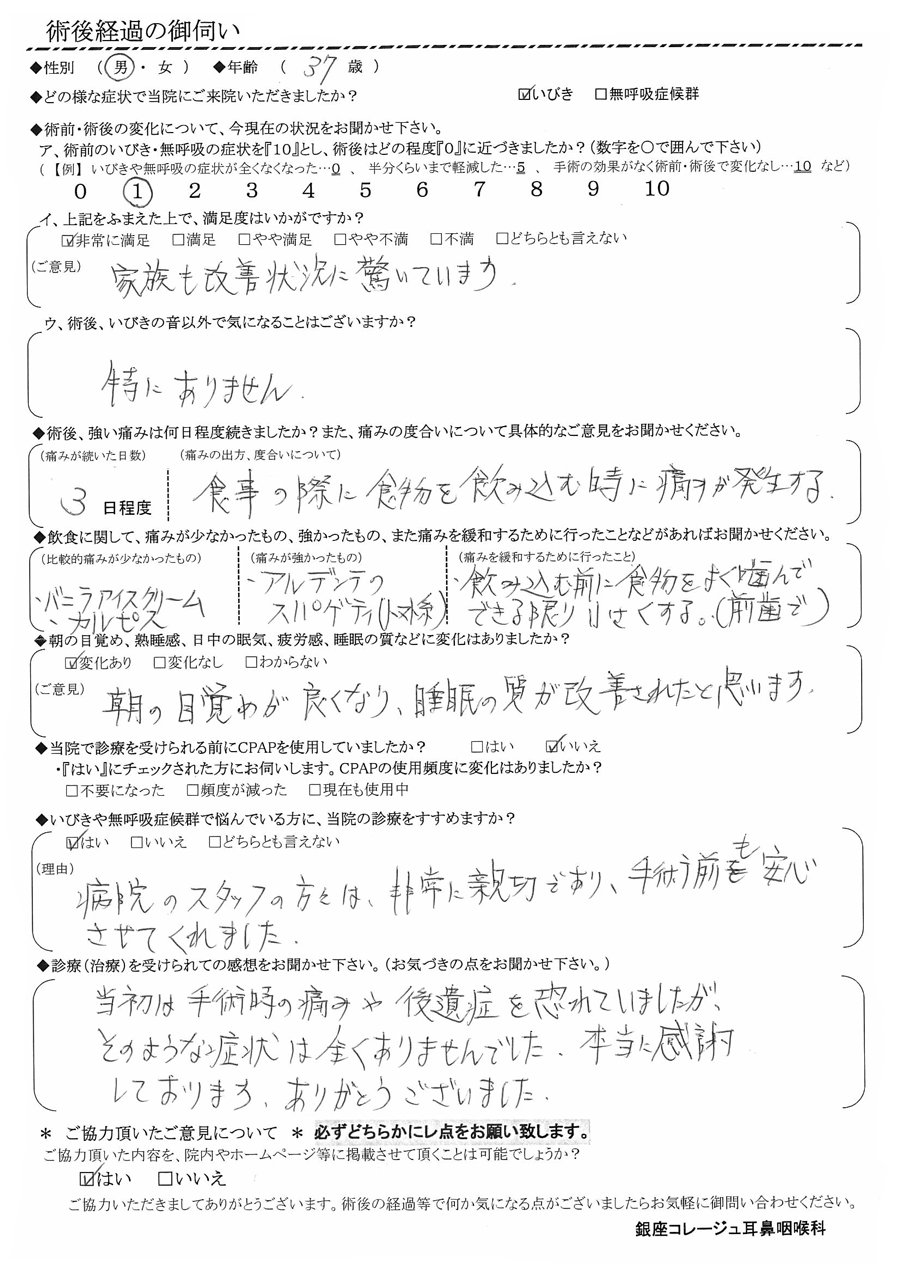 術後経過の御伺い
◆性別 （ 男 ・ 女 ） ◆年齢 （ 37 歳 ）
◆どの様な症状で当院にご来院いただきましたか？ ☑いびき □無呼吸症候群
◆術前・術後の変化について、今現在の状況をお聞かせ下さい。
ア、術前のいびき・無呼吸の症状を『10』とし、術後はどの程度『0』に近づきましたか？（数字を○で囲んで下さい）
（【例】いびきや無呼吸の症状が全くなくなった…0 、 半分くらいまで軽減した…5 、 手術の効果がなく術前・術後で変化なし…10 など）
0 1 2 3 4 5 6 7 8 9 10
イ、上記をふまえた上で、満足度はいかがですか？
☑非常に満足 □満足 □やや満足 □やや不満 □不満 □どちらとも言えない
（ご意見） 家族も改善状況に驚いています.
ウ、術後、いびきの音以外で気になることはございますか？
特にありません.
◆術後、強い痛みは何日程度続きましたか？また、痛みの度合いについて具体的なご意見をお聞かせください。
（痛みが続いた日数） （痛みの出方、度合いについて）
3 日程度 食事の際に食物を飲み込む時に痛みが発生する.
◆飲食に関して、痛みが少なかったもの、強かったもの、また痛みを緩和するために行ったことなどがあればお聞かせください。
（比較的痛みが少なかったもの） （痛みが強かったもの） （痛みを緩和するために行ったこと）
・バニラアイスクリーム ・アルデンテの ・飲み込む前に食物をよく噛んで
・カルピス スパゲティ(トマト系) できる限り小さくする。(前歯で)
◆朝の目覚め、熟睡感、日中の眠気、疲労感、睡眠の質などに変化はありましたか？
☑変化あり □変化なし □わからない
（ご意見） 朝の目覚めが良くなり、睡眠の質が改善されたと思います.
◆当院で診療を受けられる前にCPAPを使用していましたか？ □はい ☑いいえ
・『はい』にチェックされた方にお伺いします。CPAPの使用頻度に変化はありましたか？
□不要になった □頻度が減った □現在も使用中
◆いびきや無呼吸症候群で悩んでいる方に、当院の診療をすすめますか？
☑はい □いいえ □どちらとも言えない
（理由）
病院のスタッフの方々は、非常に親切であり、手術う前も安心
させてくれました.
◆診療（治療）を受けられての感想をお聞かせ下さい。（お気づきの点をお聞かせ下さい。）
当初は手術時の痛みや後遺症を恐れていましたが、
そのような症状は全くありませんでした. 本当に感謝
しております、ありがとうございました.
＊ ご協力頂いたご意見について ＊ 必ずどちらかにレ点をお願い致します。
ご協力頂いた内容を、院内やホームページ等に掲載させて頂くことは可能でしょうか？
☑はい □いいえ
ご協力いただきましてありがとうございます。術後の経過等で何か気になる点がございましたらお気軽に御問い合わせください。
銀座コレージュ耳鼻咽喉科